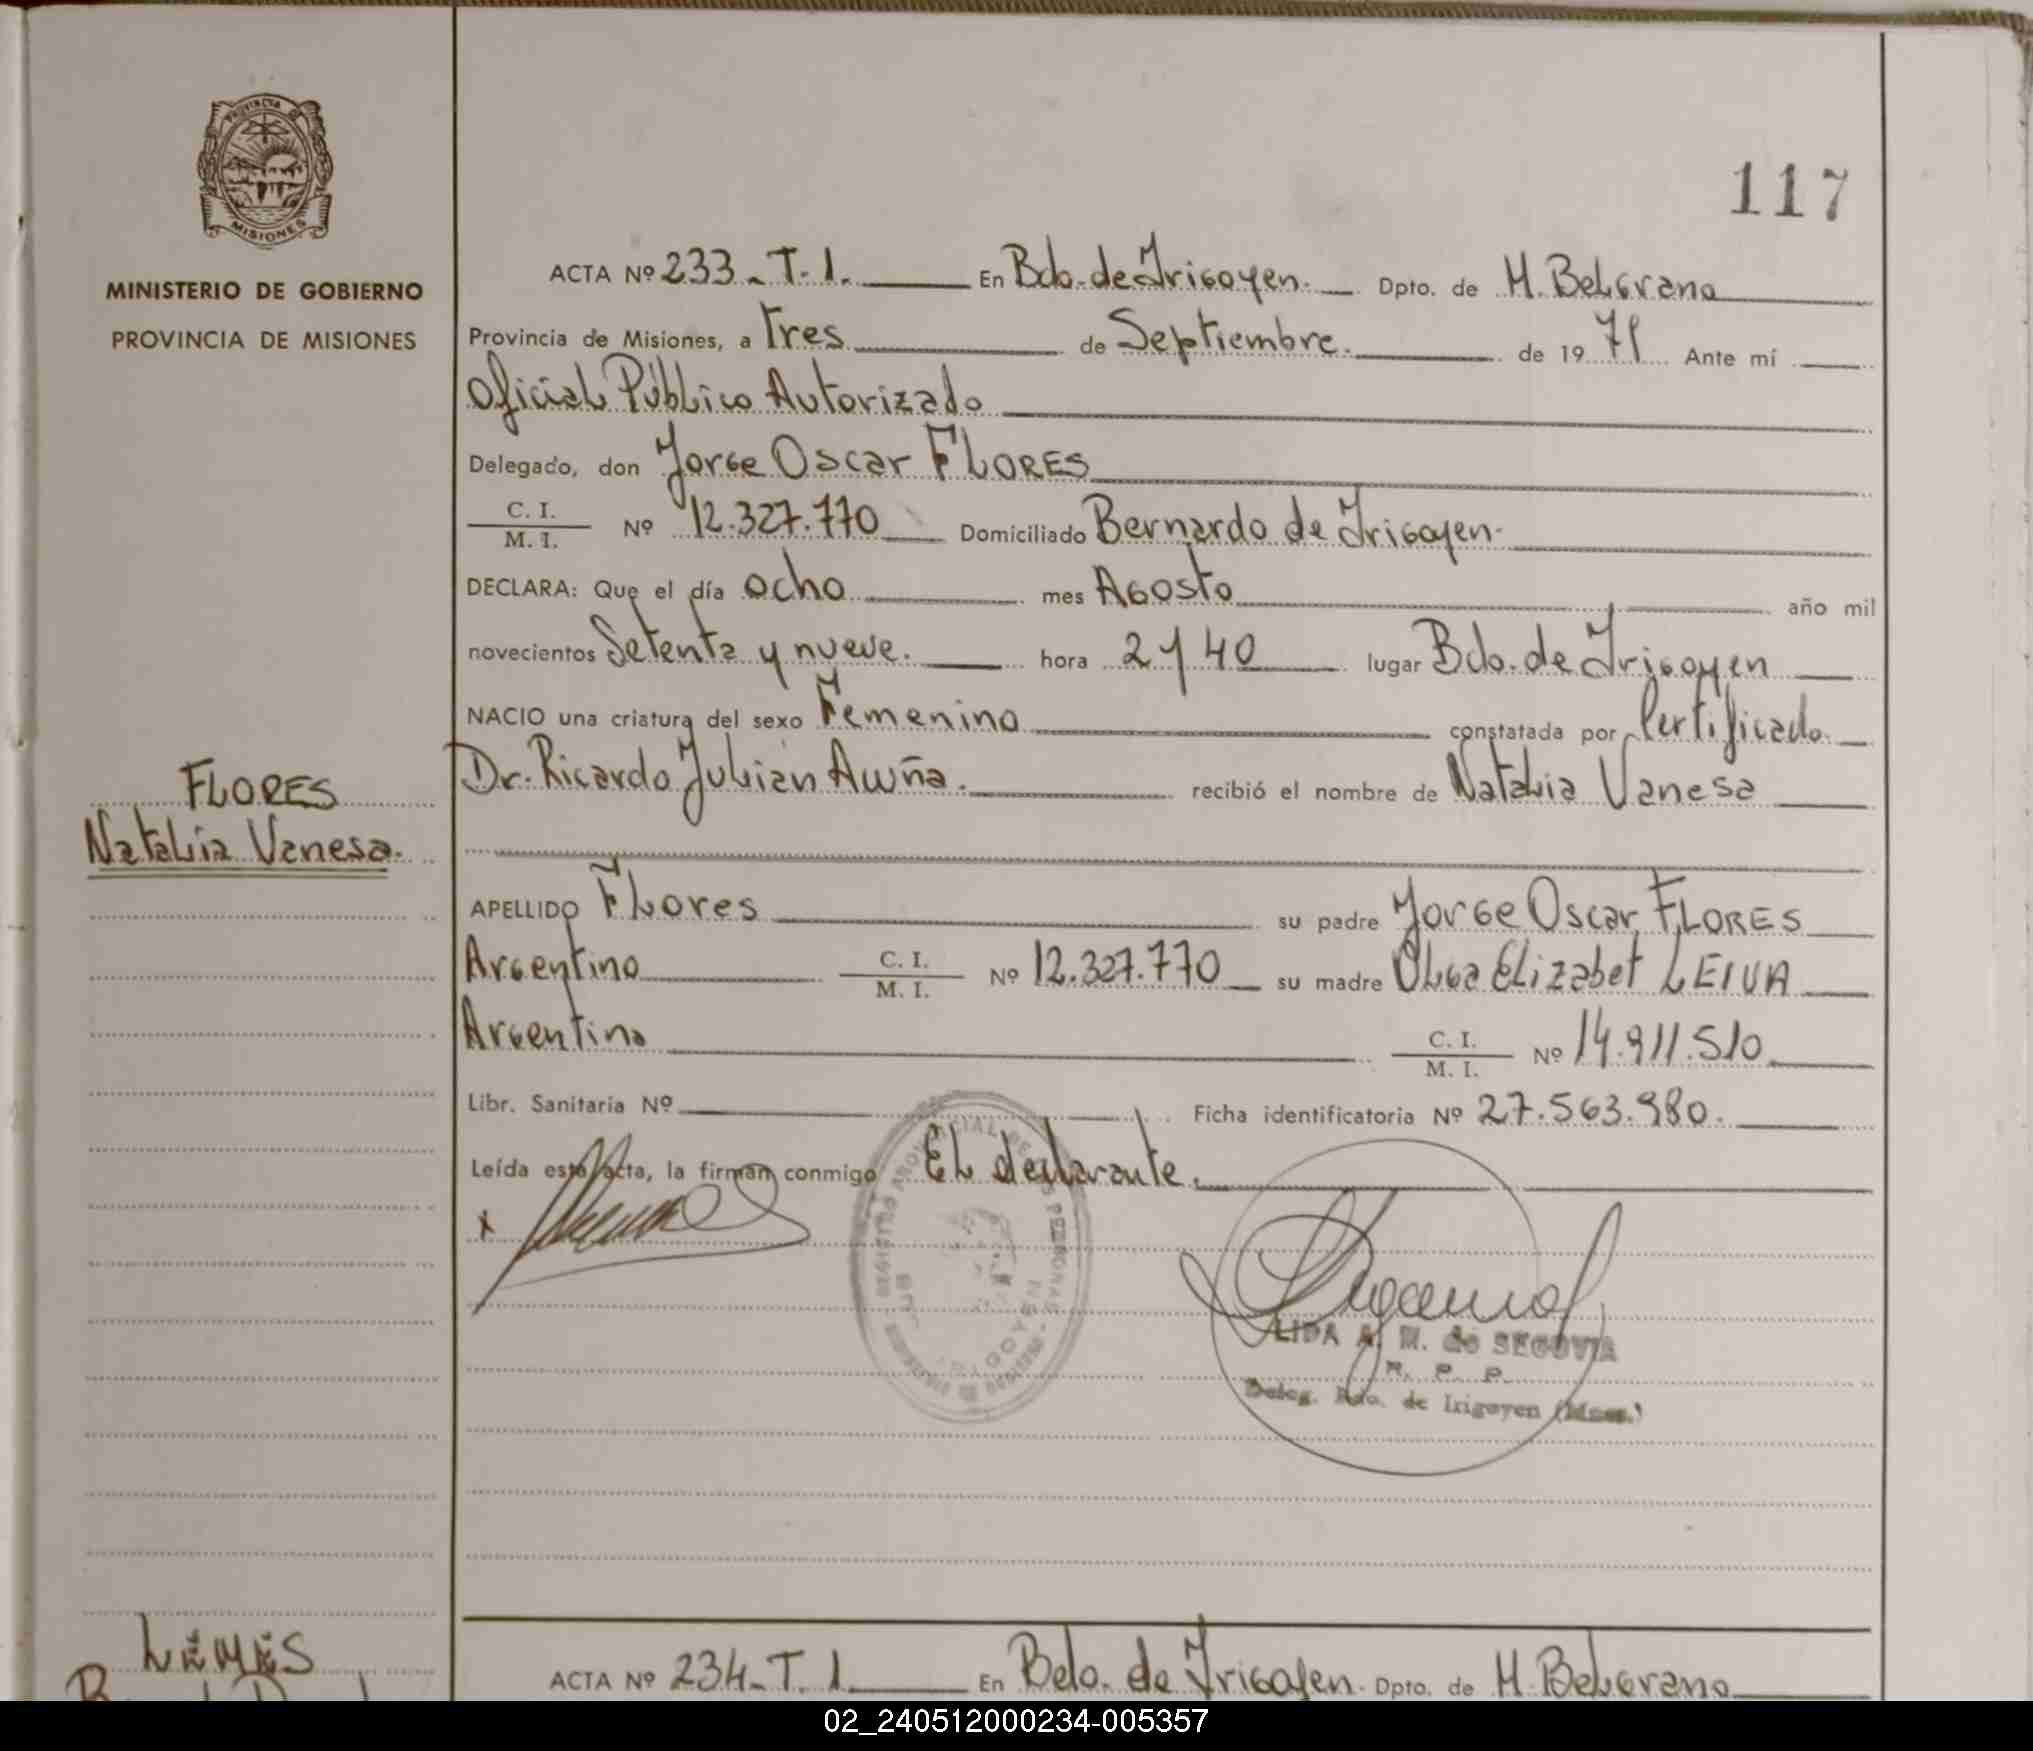 PROVINCIA DE
MISIONES
MINISTERIO DE GOBIERNO
PROVINCIA DE MISIONES
117
ACTA Nº 233-T.1. En Bdo. de Irigoyen. Dpto. de H. Belgrano
Provincia de Misiones, a Tres de Septiembre. de 19 79 Ante mí
Oficial Público Autorizado
Delegado, don Jorge Oscar FLORES
C. I.
M. I. Nº 12.327.770 Domiciliado Bernardo de Irigoyen.
DECLARA: Que el día ocho mes Agosto año mil
novecientos Setenta y nueve. hora 2 y 40 lugar Bdo. de Irigoyen
NACIO una criatura del sexo Femenino constatada por Certificado
Dr. Ricardo Julián Acuña. recibió el nombre de Natalia Vanesa
FLORES
Natalia Vanesa.
APELLIDO Flores su padre Jorge Oscar FLORES
Argentino C. I.
M. I. Nº 12.327.770 su madre Olga Elizabet LEIVA
Argentina C. I.
M. I. Nº 14.911.510
Libr. Sanitaria Nº Ficha identificatoria Nº 27.563.980.
Leída esta acta, la firman conmigo El declarante.
x
LIDA A. M. de SEGOVIA
R. P. P.
Deleg. Bdo. de Irigoyen (Mnes.)
LEMES
ACTA Nº 234-T.1 En Bdo. de Irigoyen. Dpto. de H. Belgrano
02_240512000234-005357